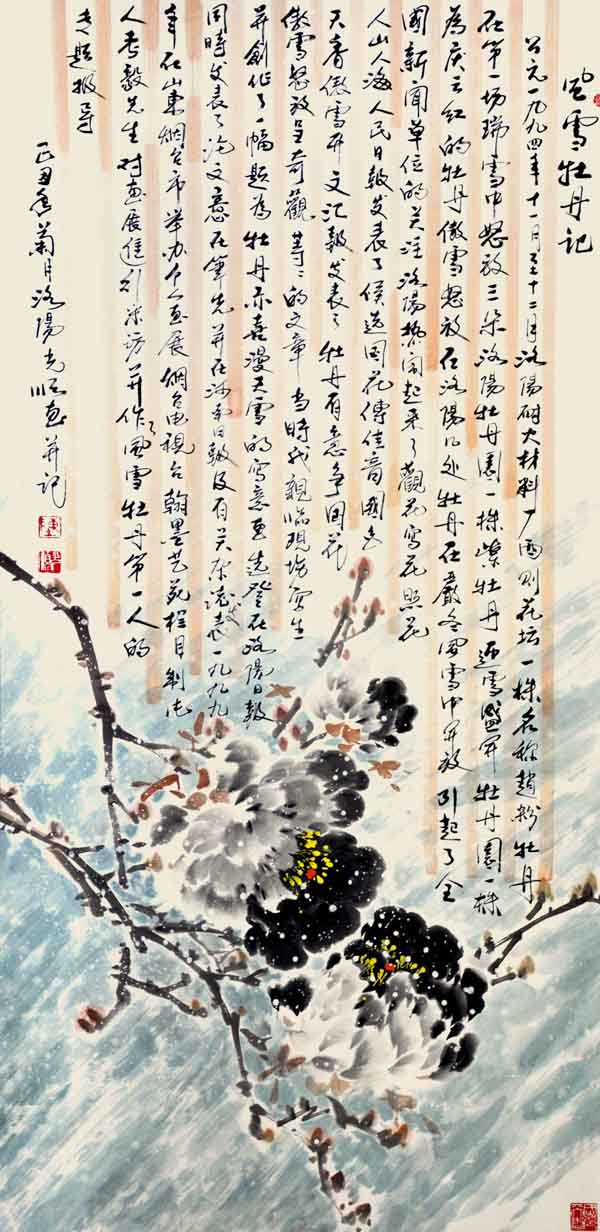 风雪牡丹记
公元一九九四年十一月至十二月洛阳耐火材料厂雨则花坛一株名称赵粉牡丹
在第一场瑞雪中怒放三朵洛阳牡丹园一株紫牡丹迎雪盛开牡丹园一株
为庆云红的牡丹傲雪怒放在洛阳几处牡丹在严冬风雪中开放引起了全
国新闻单位的关注洛阳热闹起来了观花写花照花
人山人海人民日报发表了候选国花传佳音国色
天香傲雪开文汇报发表了牡丹有意争国花
傲雪怒放呈奇观等等的文章当时我亲临现场写生
并创作了一幅题为牡丹亦喜漫天雪的写意画选登在洛阳日报
同时发表了论文意在笔先并在河南日报及有关报发表一九九九
年在山东烟台市举办个人画展烟台电视台翰墨艺苑栏目制片
人秀毅先生对画展进行采访并作了风雪牡丹第一人的
专题报导
丁丑年菊月洛阳光顺画并记